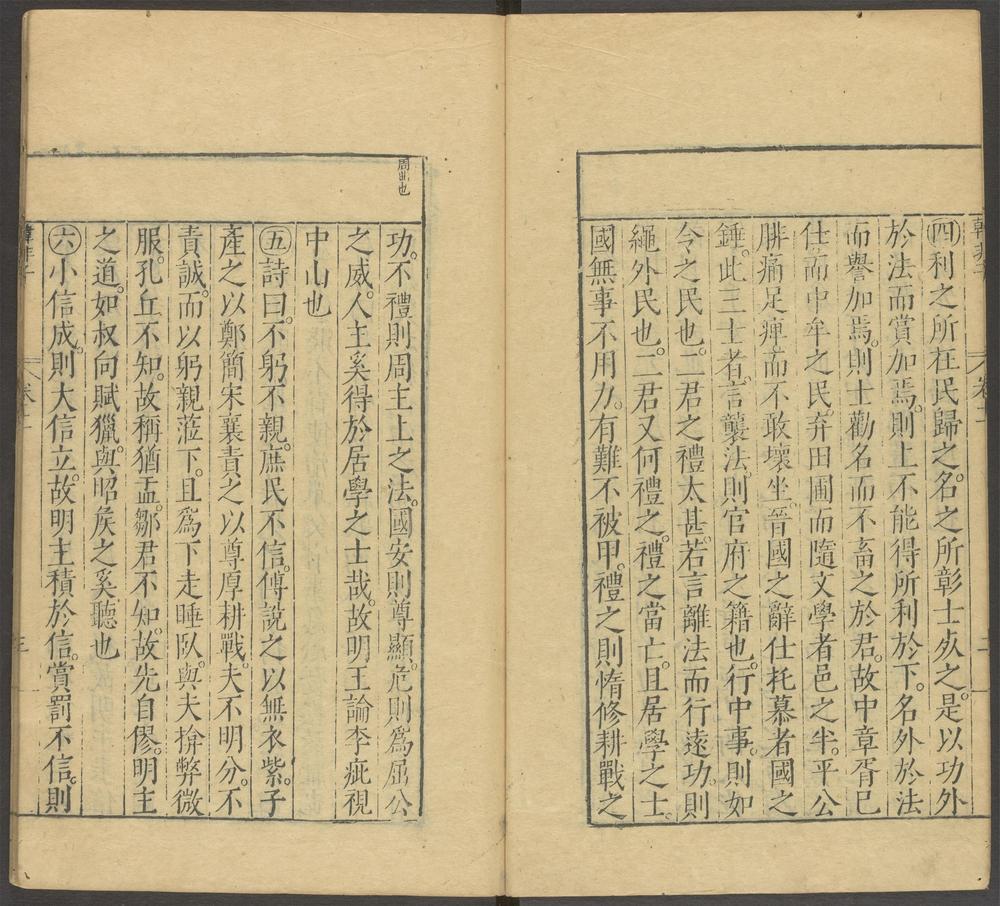 韓非子
卷十一
二
㊃利之所在民歸之。名之所彰士死之。是以功外
於法而賞加焉。則上不能得所利於下。名外於法
而譽加焉。則士勸名而不畜之於君。故中章胥已
仕而中牟之民。弃田圃而隨文學者邑之半。平公
腓痛足痺而不敢壞坐。晉國之辭仕托慕者國之
錘。此三士者。言襲法。則官府之籍也。行中事。則如
令之民也。二君之禮太甚。若言離法而行遠功。則
繩外民也。二君又何禮之。禮之當亡。且居學之士。
國無事不用力。有難不被甲。禮之則惰修耕戰之
功。不禮則周主上之法。國安則尊顯。危則為屈公
之威。人主奚得於居學之士哉。故明王論李疵視
中山也
㊄詩曰。不躬不親。庶民不信。傅說之以無衣紫。子
產之以鄭簡宋襄責之以尊厚耕戰。夫不明分。不
責誠。而以躬親蒞下。且爲下走睡臥。與夫揜弊微
服。孔丘不知。故稱猶盂。鄒君不知。故先自僇。明主
之道。如叔向賦獵。與昭矦之奚聽也
㊅小信成。則大信立。故明主積於信。賞罰不信。則
周也
韓非子
卷十一
三